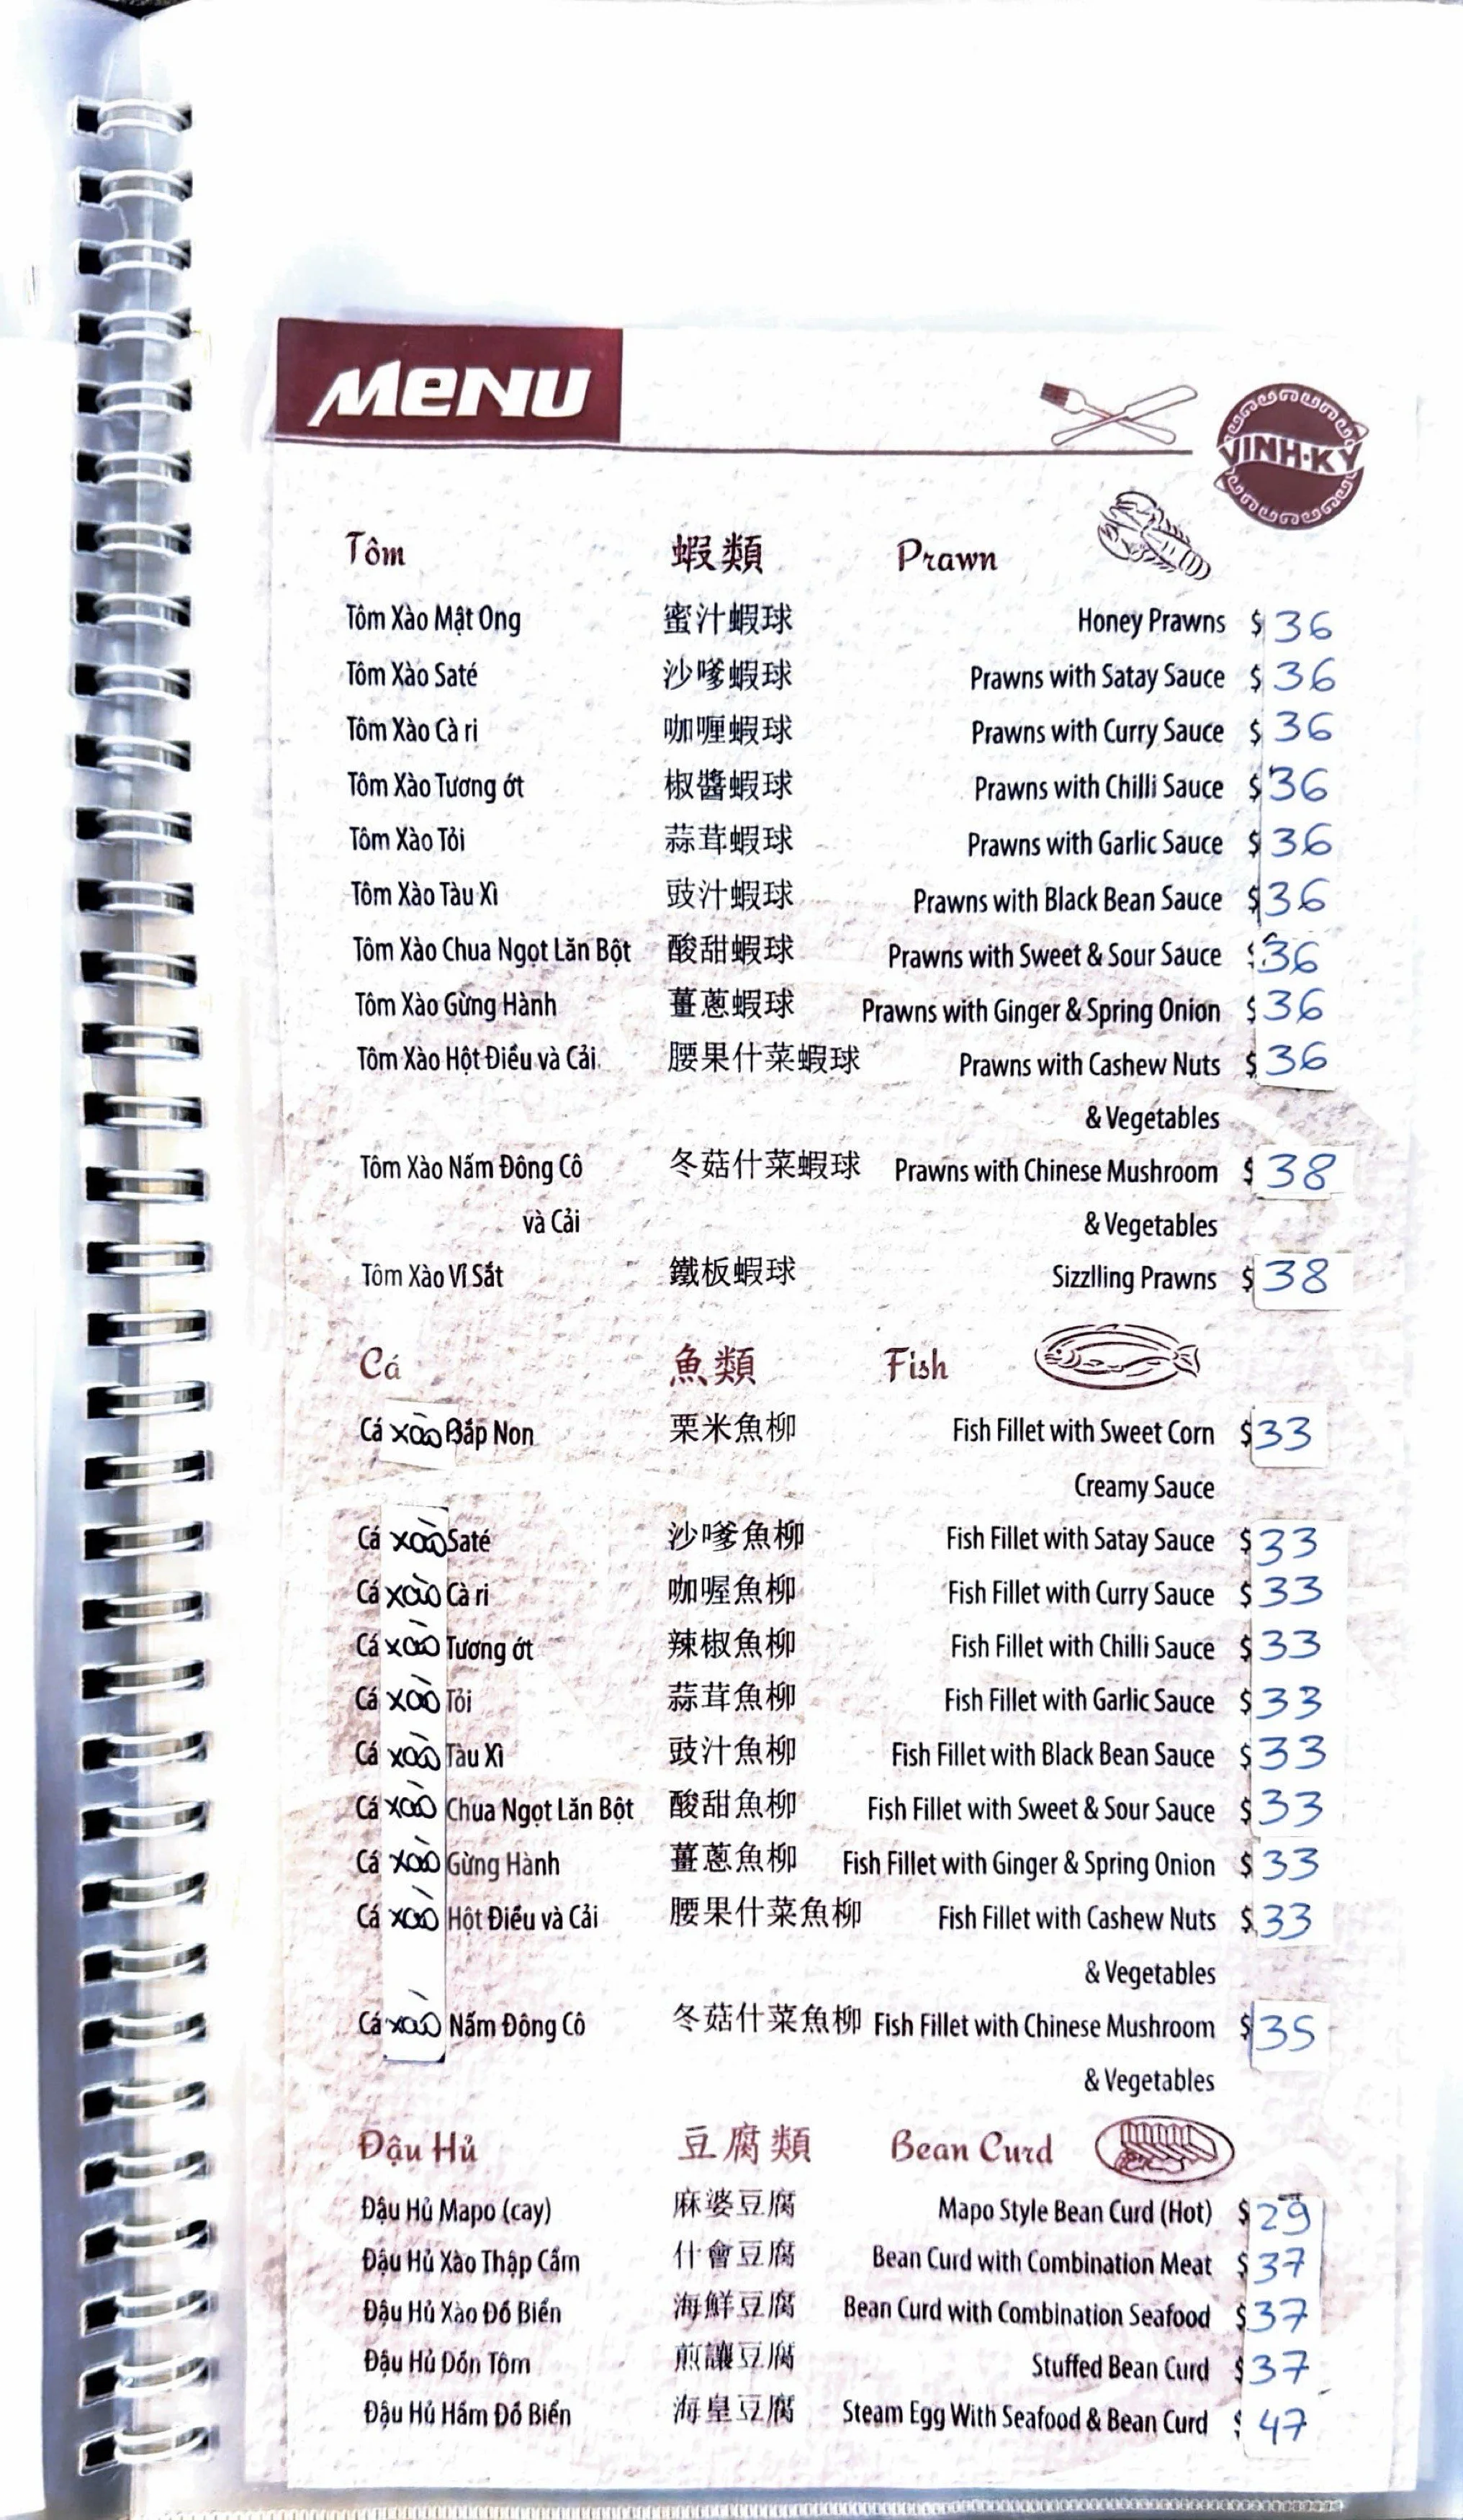 MENU
VINH·KY
Tôm 蝦類 Prawn
Tôm Xào Mật Ong 蜜汁蝦球 Honey Prawns $ 36
Tôm Xào Saté 沙嗲蝦球 Prawns with Satay Sauce $ 36
Tôm Xào Cà ri 咖喱蝦球 Prawns with Curry Sauce $ 36
Tôm Xào Tương ớt 椒醬蝦球 Prawns with Chilli Sauce $ 36
Tôm Xào Tỏi 蒜茸蝦球 Prawns with Garlic Sauce $ 36
Tôm Xào Tàu Xì 豉汁蝦球 Prawns with Black Bean Sauce $ 36
Tôm Xào Chua Ngọt Lăn Bột 酸甜蝦球 Prawns with Sweet & Sour Sauce $ 36
Tôm Xào Gừng Hành 薑蔥蝦球 Prawns with Ginger & Spring Onion $ 36
Tôm Xào Hột Điều và Cải 腰果什菜蝦球 Prawns with Cashew Nuts $ 36
& Vegetables
Tôm Xào Nấm Đông Cô 冬菇什菜蝦球 Prawns with Chinese Mushroom $ 38
và Cải & Vegetables
Tôm Xào Vĩ Sắt 鐵板蝦球 Sizzlling Prawns $ 38
Cá 魚類 Fish
Cá xào Bắp Non 栗米魚柳 Fish Fillet with Sweet Corn $ 33
Creamy Sauce
Cá xào Saté 沙嗲魚柳 Fish Fillet with Satay Sauce $ 33
Cá xào Cà ri 咖喔魚柳 Fish Fillet with Curry Sauce $ 33
Cá xào Tương ớt 辣椒魚柳 Fish Fillet with Chilli Sauce $ 33
Cá xào Tỏi 蒜茸魚柳 Fish Fillet with Garlic Sauce $ 33
Cá xào Tàu Xì 豉汁魚柳 Fish Fillet with Black Bean Sauce $ 33
Cá xào Chua Ngọt Lăn Bột 酸甜魚柳 Fish Fillet with Sweet & Sour Sauce $ 33
Cá xào Gừng Hành 薑蔥魚柳 Fish Fillet with Ginger & Spring Onion $ 33
Cá xào Hột Điều và Cải 腰果什菜魚柳 Fish Fillet with Cashew Nuts $ 33
& Vegetables
Cá xào Nấm Đông Cô 冬菇什菜魚柳 Fish Fillet with Chinese Mushroom $ 35
& Vegetables
Đậu Hủ 豆腐類 Bean Curd
Đậu Hủ Mapo (cay) 麻婆豆腐 Mapo Style Bean Curd (Hot) $ 29
Đậu Hủ Xào Thập Cẩm 什會豆腐 Bean Curd with Combination Meat $ 37
Đậu Hủ Xào Đồ Biển 海鮮豆腐 Bean Curd with Combination Seafood $ 37
Đậu Hủ Dồn Tôm 煎讓豆腐 Stuffed Bean Curd $ 37
Đậu Hủ Hầm Đồ Biển 海皇豆腐 Steam Egg With Seafood & Bean Curd $ 47